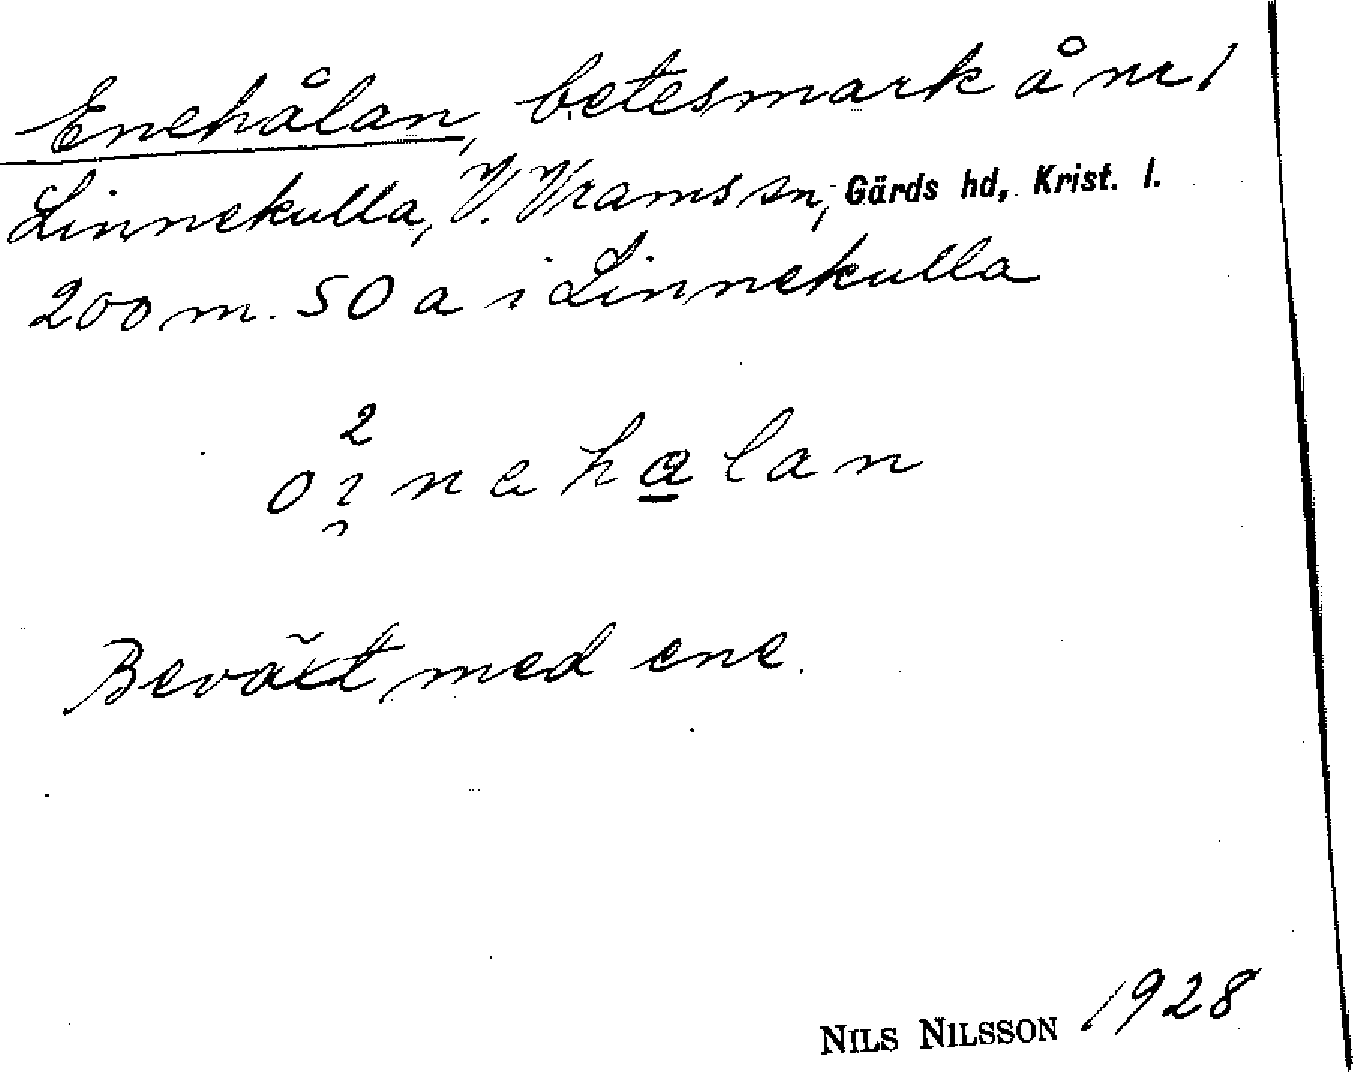 Enehålan, betesmark å nr 1
Linnekulla, V. Vrams sn, Gärds hd, Krist. l.
200 m. SO a i Linnekulla
2
oınahalan
Beväxt med ene.
NILS NILSSON 1928